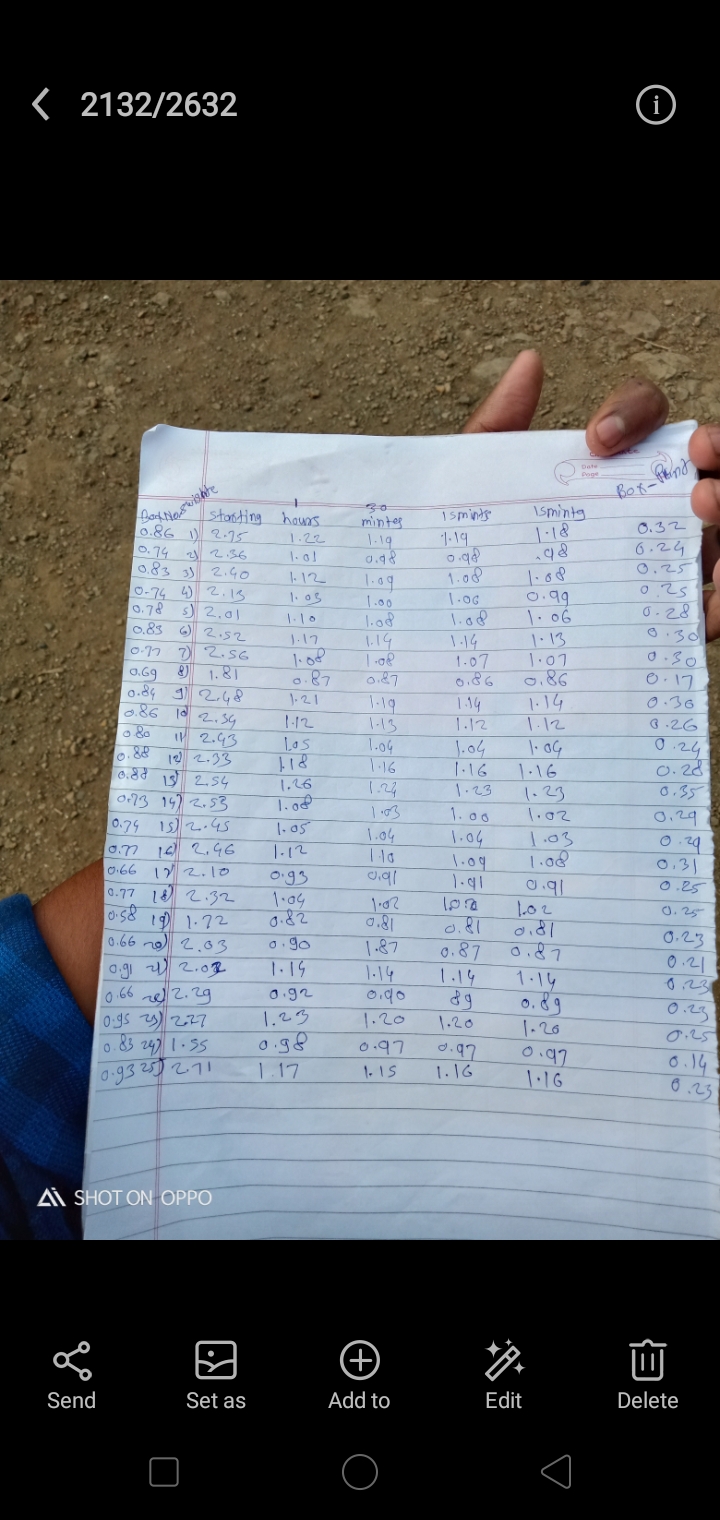 2132/2632
Date
Page
Box-Plant
Box Now weighte starting 1 hours 30 mintes 15 mints 15 mintg
0.86 1) 2.75 1.22 1.19 1.19 1.18 0.32
0.74 2) 2.36 1.01 0.98 0.98 .98 0.24
0.83 3) 2.40 1.12 1.09 1.08 1.08 0.25
0.74 4) 2.13 1.03 1.00 1.00 0.99 0.25
0.78 5) 2.01 1.10 1.08 1.08 1.06 0.28
0.83 6) 2.52 1.17 1.14 1.14 1.13 0.30
0.77 7) 2.56 1.08 1.08 1.07 1.07 0.30
0.69 8) 1.81 0.87 0.87 0.86 0.86 0.17
0.84 9) 2.48 1.21 1.19 1.14 1.14 0.30
0.86 10 2.34 1.12 1.13 1.12 1.12 0.26
0.80 11) 2.43 1.05 1.04 1.04 1.04 0.24
0.88 12) 2.33 1.18 1.16 1.16 1.16 0.28
0.88 13) 2.54 1.26 1.24 1.23 1.23 0.35
0.73 14) 2.53 1.08 1.03 1.00 1.02 0.29
0.74 15) 2.45 1.05 1.04 1.04 1.03 0.29
0.77 16) 2.46 1.12 1.10 1.09 1.08 0.31
0.66 17) 2.10 0.93 0.91 1.91 0.91 0.25
0.77 18) 2.32 1.04 1.02 1.02 1.02 0.25
0.58 19) 1.72 0.82 0.81 0.81 0.81 0.23
0.66 20) 2.03 0.90 1.87 0.87 0.87 0.21
0.91 21) 2.02 1.14 1.14 1.14 1.14 0.23
0.66 22) 2.29 0.92 0.90 89 0.89 0.23
0.95 23) 2.27 1.23 1.20 1.20 1.20 0.25
0.83 24) 1.55 0.98 0.97 0.97 0.97 0.14
0.93 25) 2.71 1.17 1.15 1.16 1.16 0.23
SHOT ON OPPO
Send Set as Add to Edit Delete